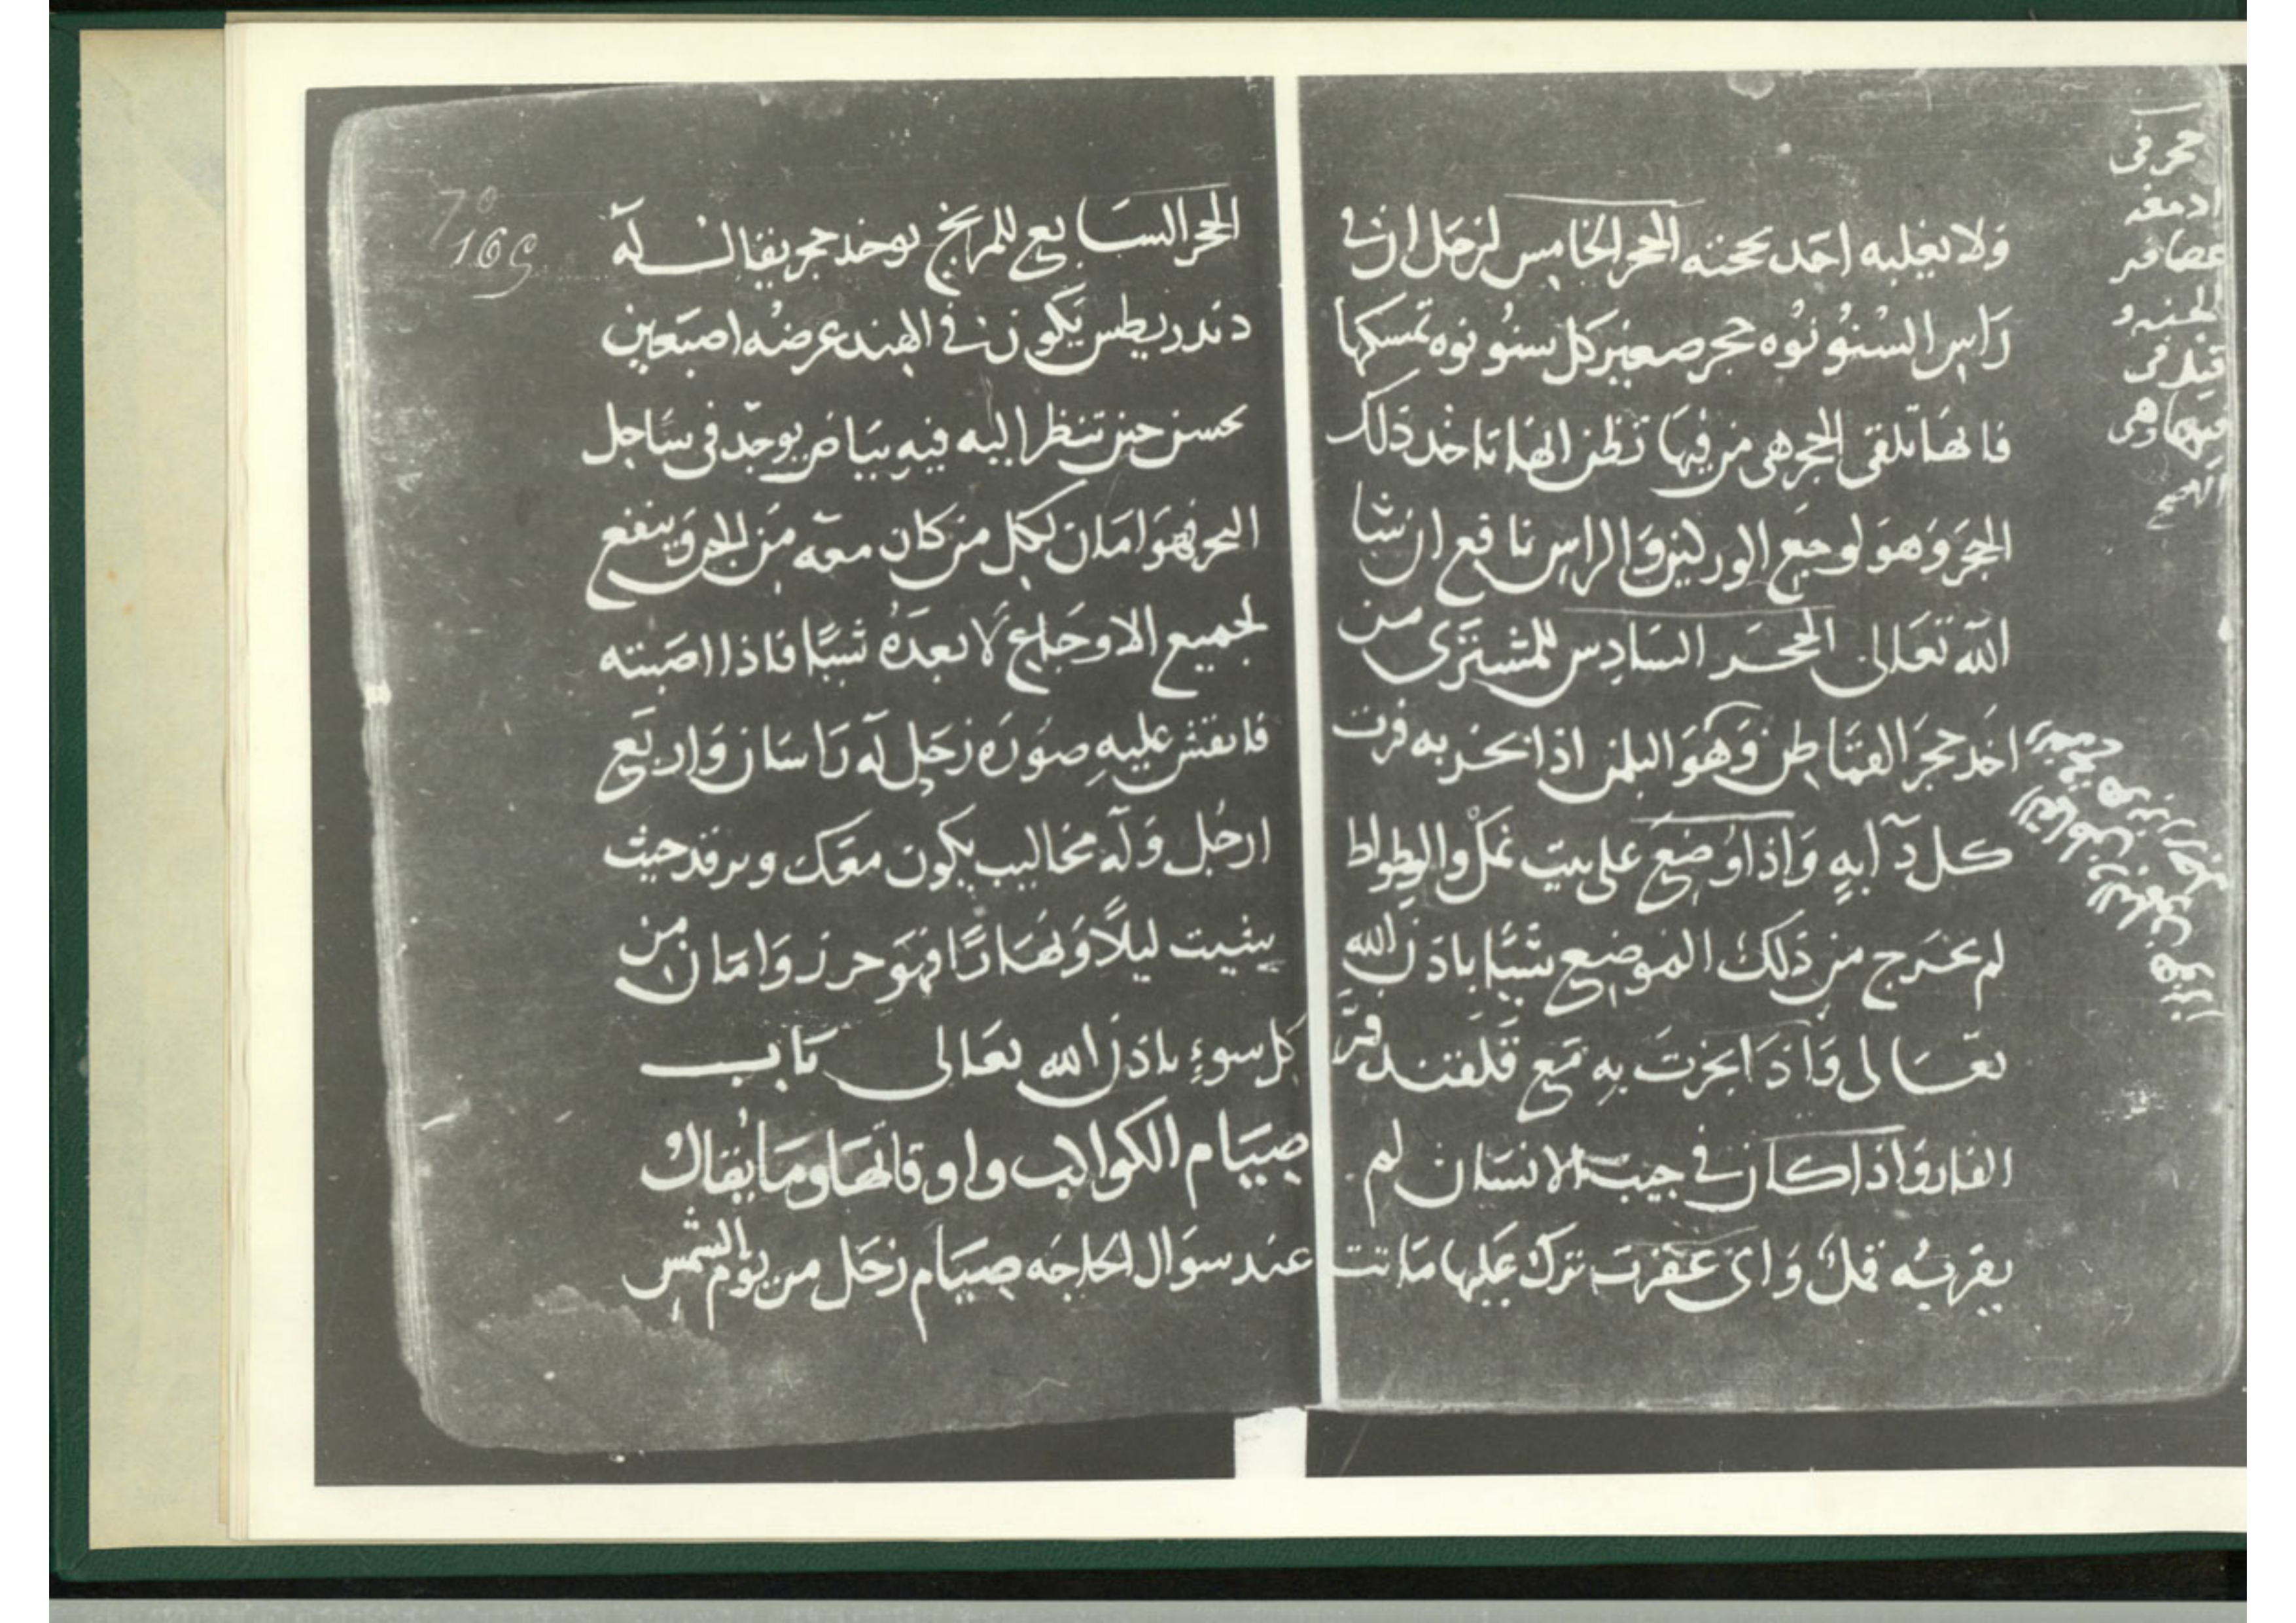 ولا يغلبه احد بحجته الحجر الخامس لزحل ان في
راس السنونوه حجر صغير كل سنونوه تمسكها
فانها تلقى الحجر هى من فيها تظن انها تاخد دلك
الحجر وهو لوجع الوركين والراس نافع ان شا
الله تعالى الححر السادس للمشترى من
اخد حجر القماطن وهو البلمن اذا بخر به فرت
كل دآابه واذا وضع على بيت نمل والوطواط
لم يخرج من ذلك الموضع شيًا باذن الله
تعالى واذا بخرت به مع قلفند فرَّ
الفار واذا كان في جيب الانسان لم
يقربه قمل واى عقرب ترك عليها ماتت
حجر فى
ادمغه
عصافير
الجنه و
قيل فى
فيها وهى
70
169
الحجر السابع للمريخ يوخد حجر يقال له
دندريطس يكون في الهند عرضه اصبعين
يحسن حين تنظر اليه فيه بياض يوجد فى ساحل
البحر فهو امان لكل من كان معه من الجن وينفع
لجميع الاوجاع لا بعده شيًا فاذا اصبته
فانقش عليه صوره زحل له راسان واربع
ارجل وله مخاليب يكون معك وترقد حيث
شيت ليلاً ونهارًا فهو حرز وامان من
كل سوءٍ باذن الله تعالى باب
صيام الكواكب واوقاتها وما يقال
عند سوال الحاجه صيام زحل من يوم الشمس